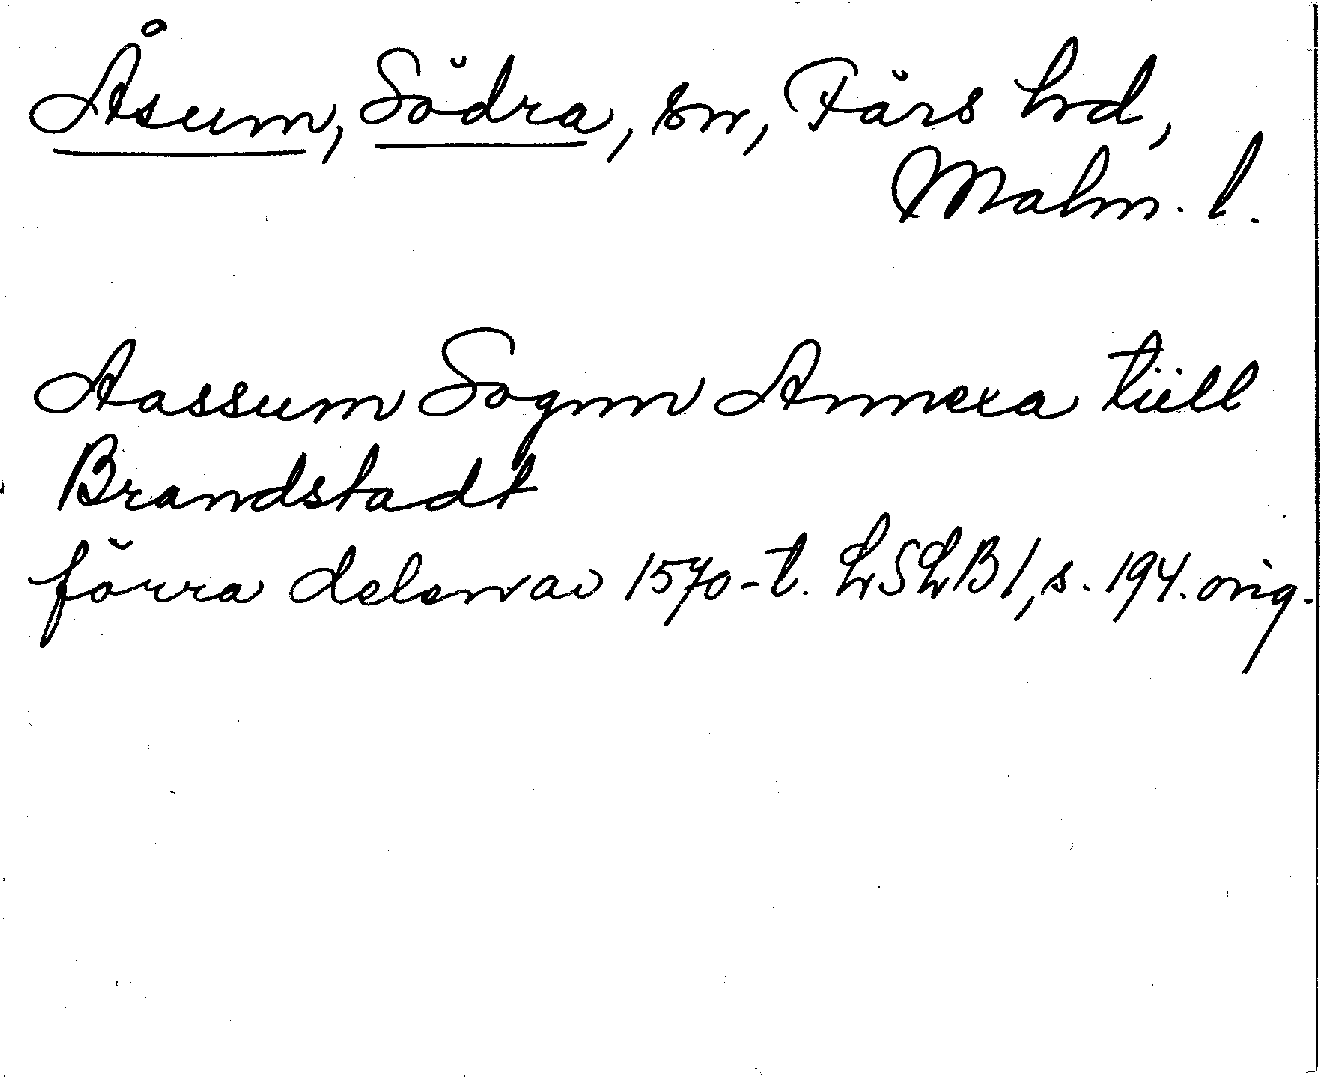 Åsum, Södra, sn, Färs hd,
Malm. l.
Aassum Sognn Annexa tiill
Brandstadt
förra delen av 1570-t. LSLB 1, s. 194. orig.